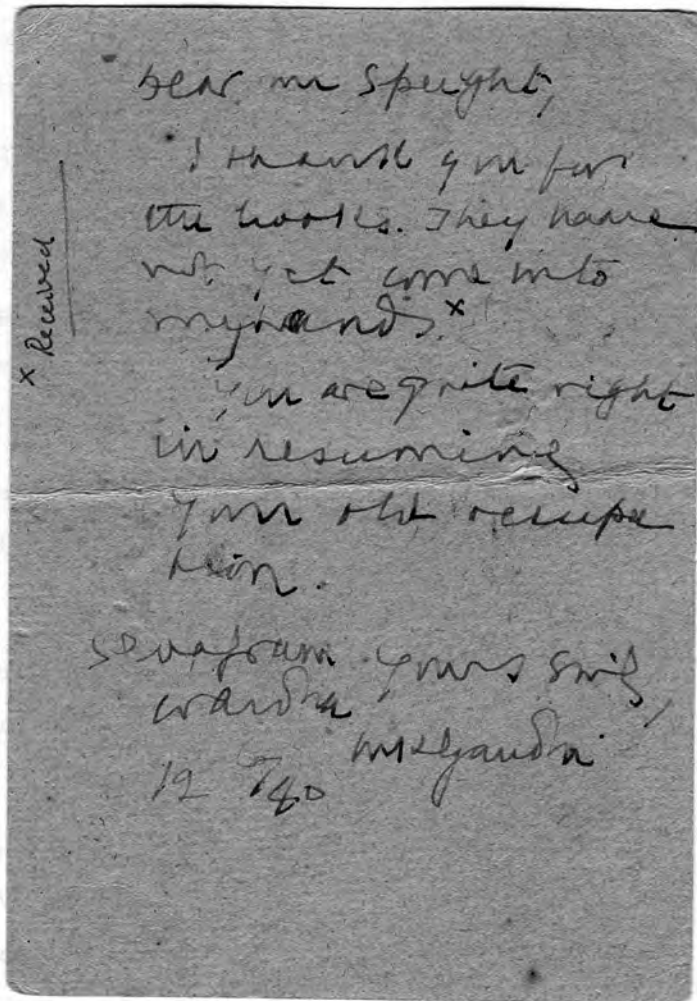 Dear Mr Speight,
I thank you for
the books. They have
not yet come into
my hands.x
You are quite right
in resuming
your old occupa
tion.
Sevagram Yours Sinly,
Wardha
MKGandhi
12
x Received